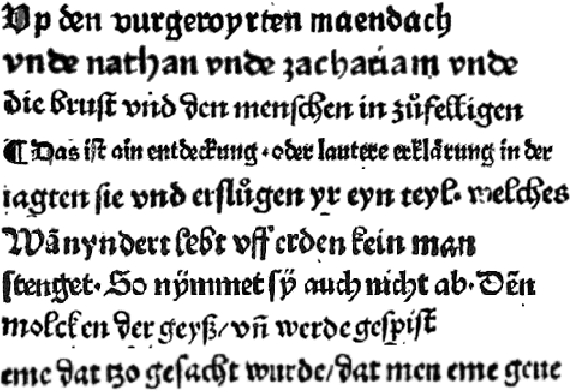 Vp den vurgeroyrten maendach
vnde nathan vnde zachariam vnde
die brust vnd den menschen in zůfelligen
¶ Das ist ain entdeckung · oder lautere erklärung in der
iagten sie vnd erslůgen yr eyn teyl. welches
Wãnyndert lebt vff erden kein man
stenget. So nÿmmet sÿ auch nicht ab. Dẽn
molcken der geyß/ vñ werde gespist
eme dat tzo gesacht wurde/ dat men eme gene